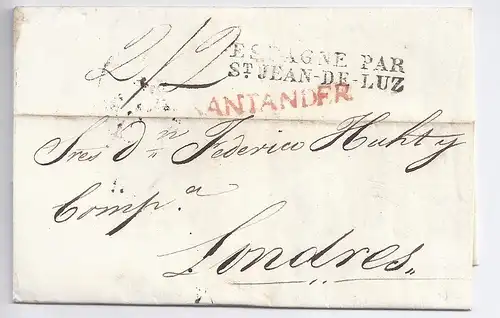 2/2
ESPAGNE PAR
Sᵗ JEAN-DE-LUZ
SANTANDER
Sres Dⁿ Federico Huht y
Compᵃ
Londres